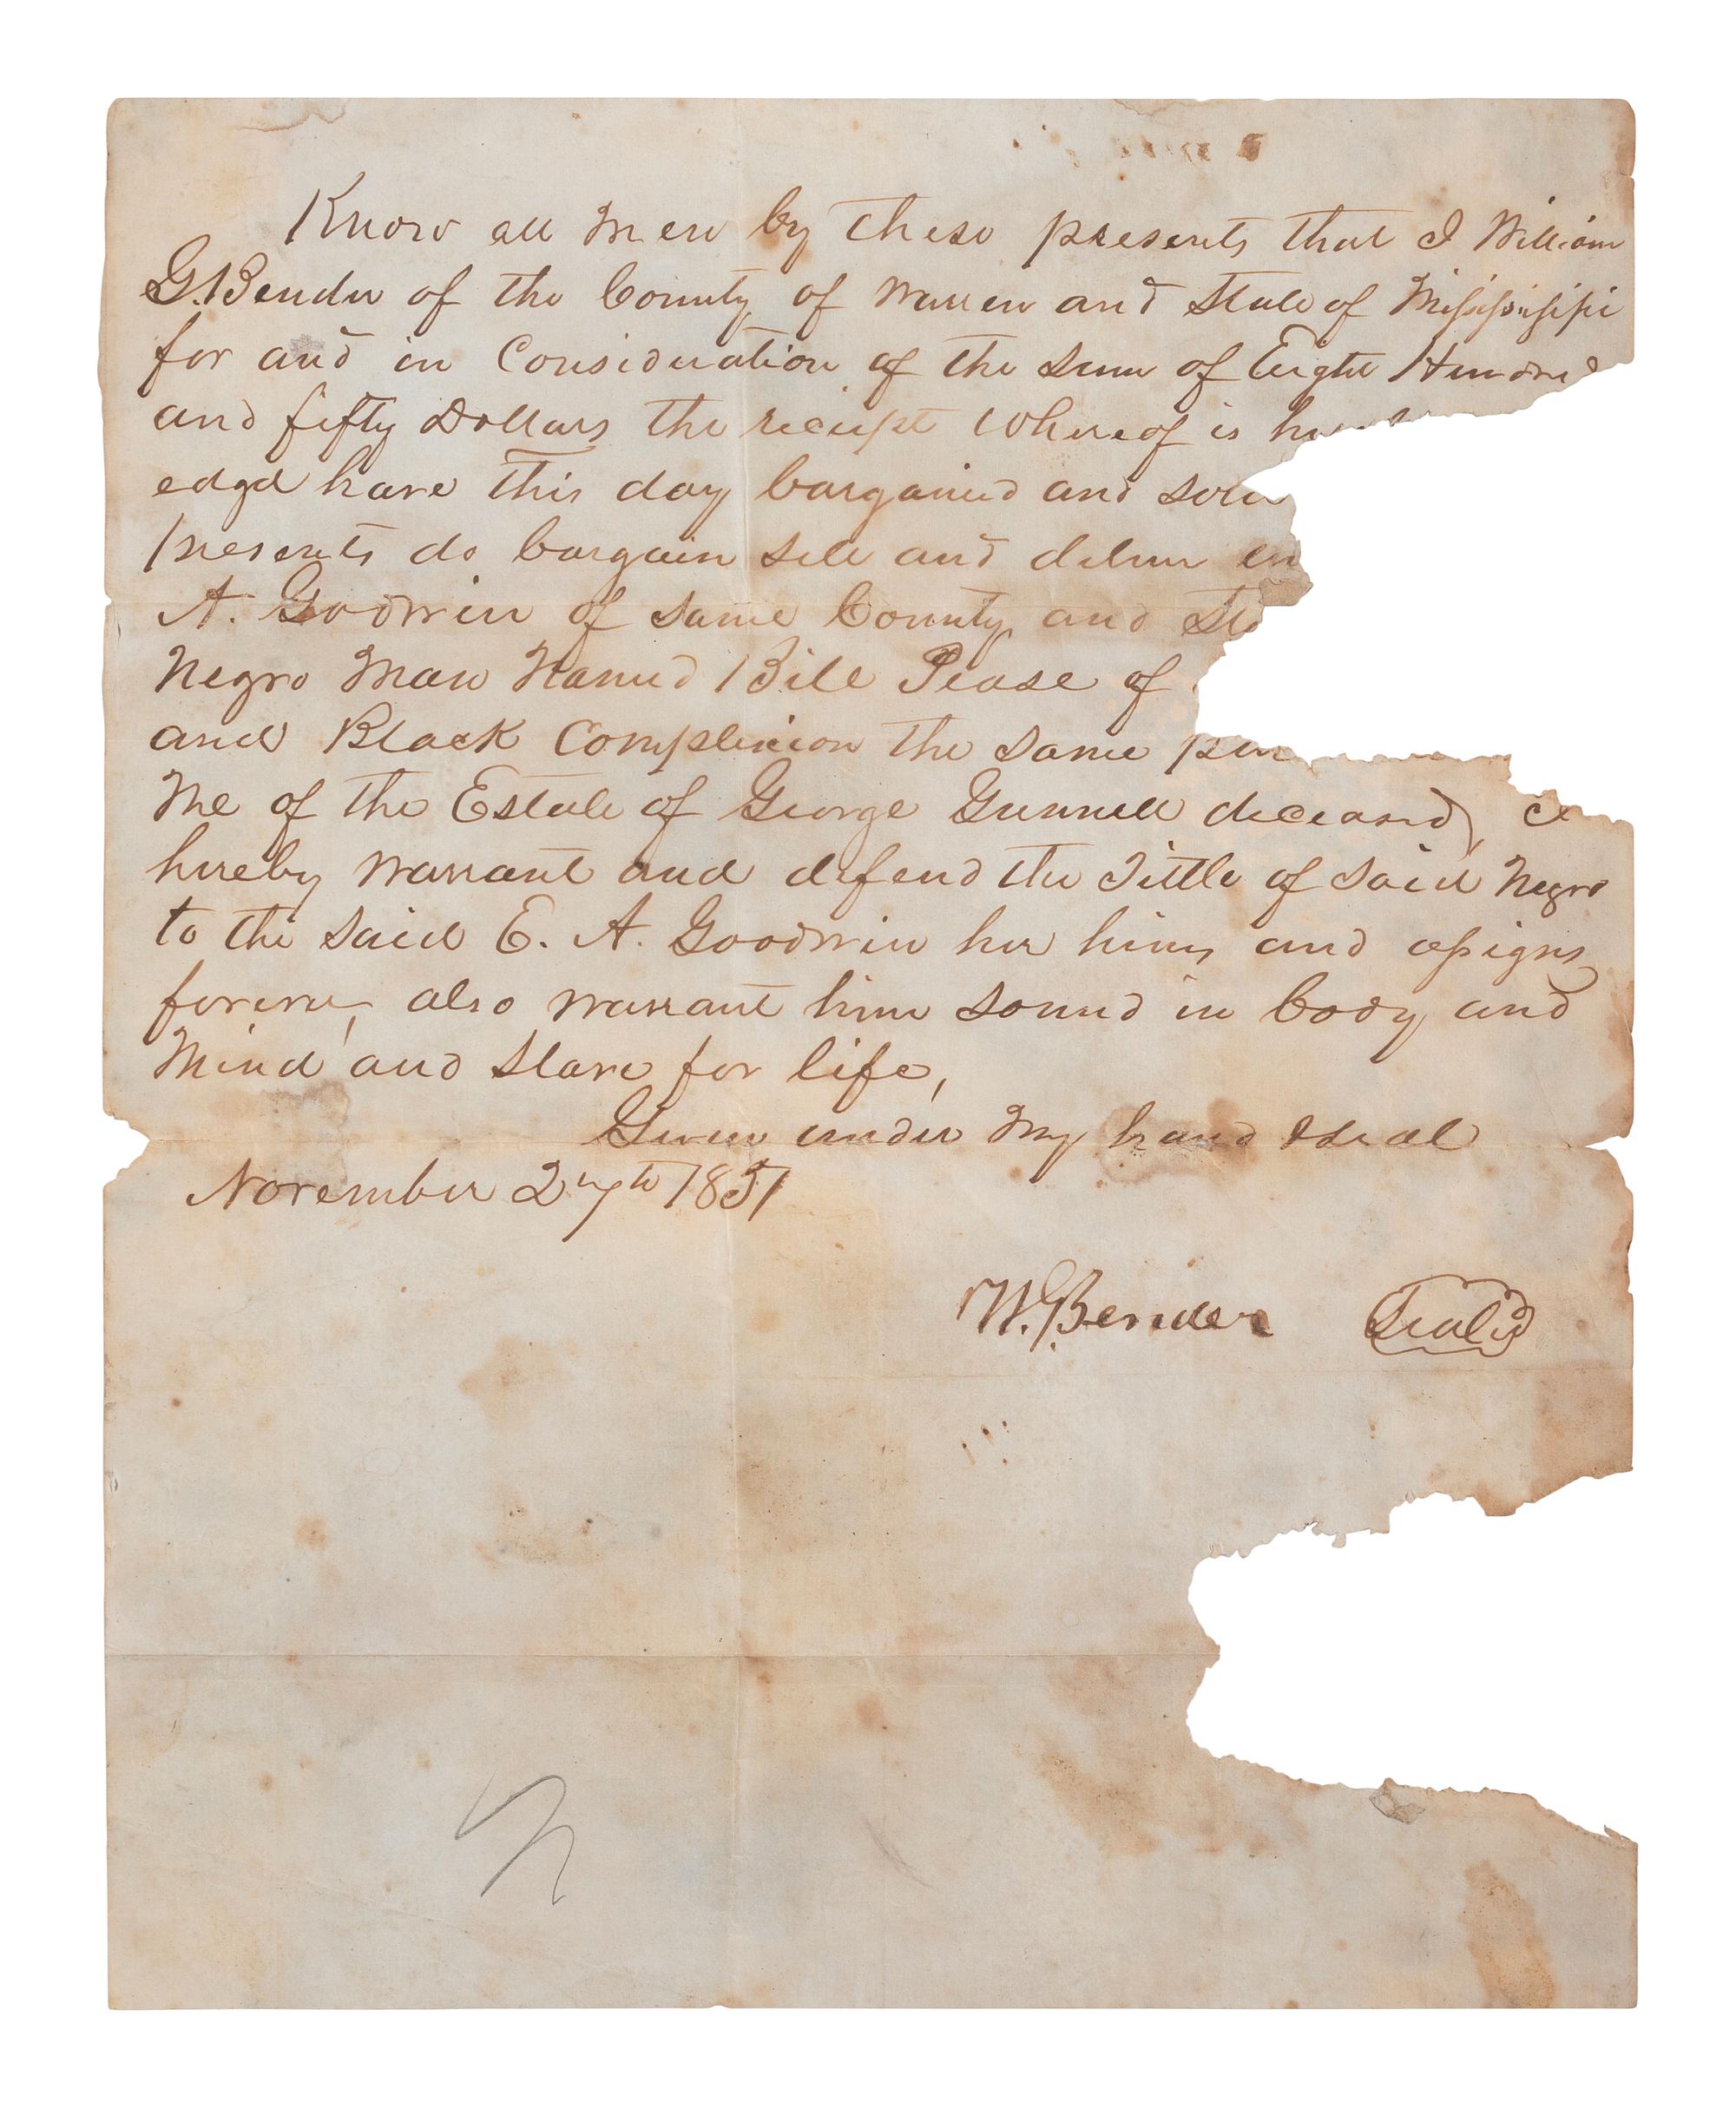 Know all men by these presents that I William
G. Bender of the County of Warren and State of Missisippi
for and in Consideration of the sum of Eight Hundred
and fifty Dollars the receipt whereof is
edgd have this day bargained and
presents do bargain sell and deliver
A. Goodwin of same County and
Negro man Named Bill Pease of
and Black Complexion the same
me of the Estate of George Gunnell deceased,
hereby warrant and defend the Tittle of said Negro
to the said E. A. Goodwin her heirs and assigns
forever, also warrant him sound in body and
Mind and slave for life,
Given under my hand & seal
November 27th 1851
W. G. Bender Seal